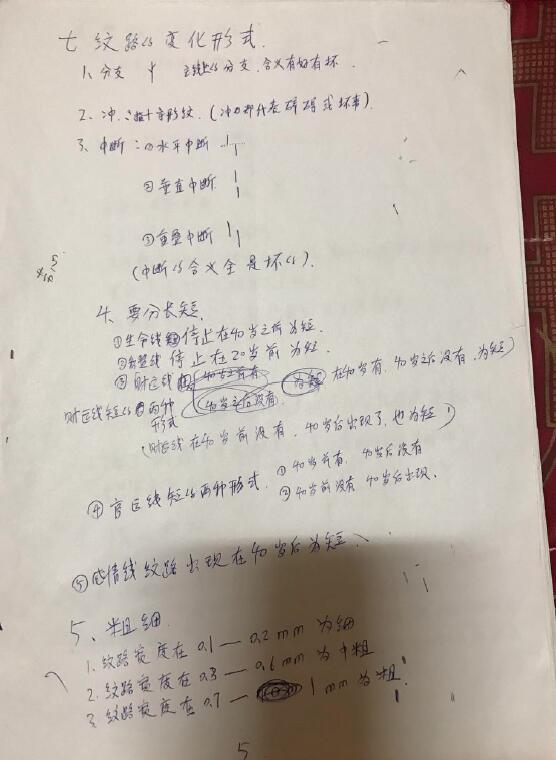 七 纹路的变化形式.
1、分支 主线上的分支.含义有好有坏.
2、冲.十字形纹.(冲力都代表碍碍或坏事).
3、中断:①水平中断
②垂直中断
③重叠中断
(中断的含义全是坏的).
4、要分长短.
①生命线 停止在40岁之前为短.
②智慧线 停止在20岁前为短.
③财运线 在40岁有,40岁之后没有,为短)
40岁之后没有.
财运线短的两种形式
(财运线在40岁前没有,40岁后出现了,也为短)
④官运线短的两种形式. ①40岁前有,40岁后没有
②40岁前没有 40岁后出现.
⑤感情线纹路出现在40岁后为短.
5、粗细.
1.纹路宽度在0.1—0.2mm为细
2.纹路宽度在0.3—0.6mm为中粗
3.纹路宽度在0.7—1mm为粗.
5